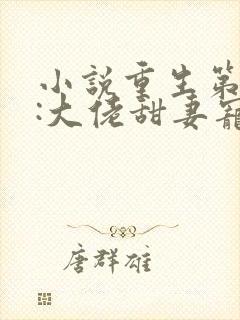 小説重生第
:大佬甜妻寵
唐群雄